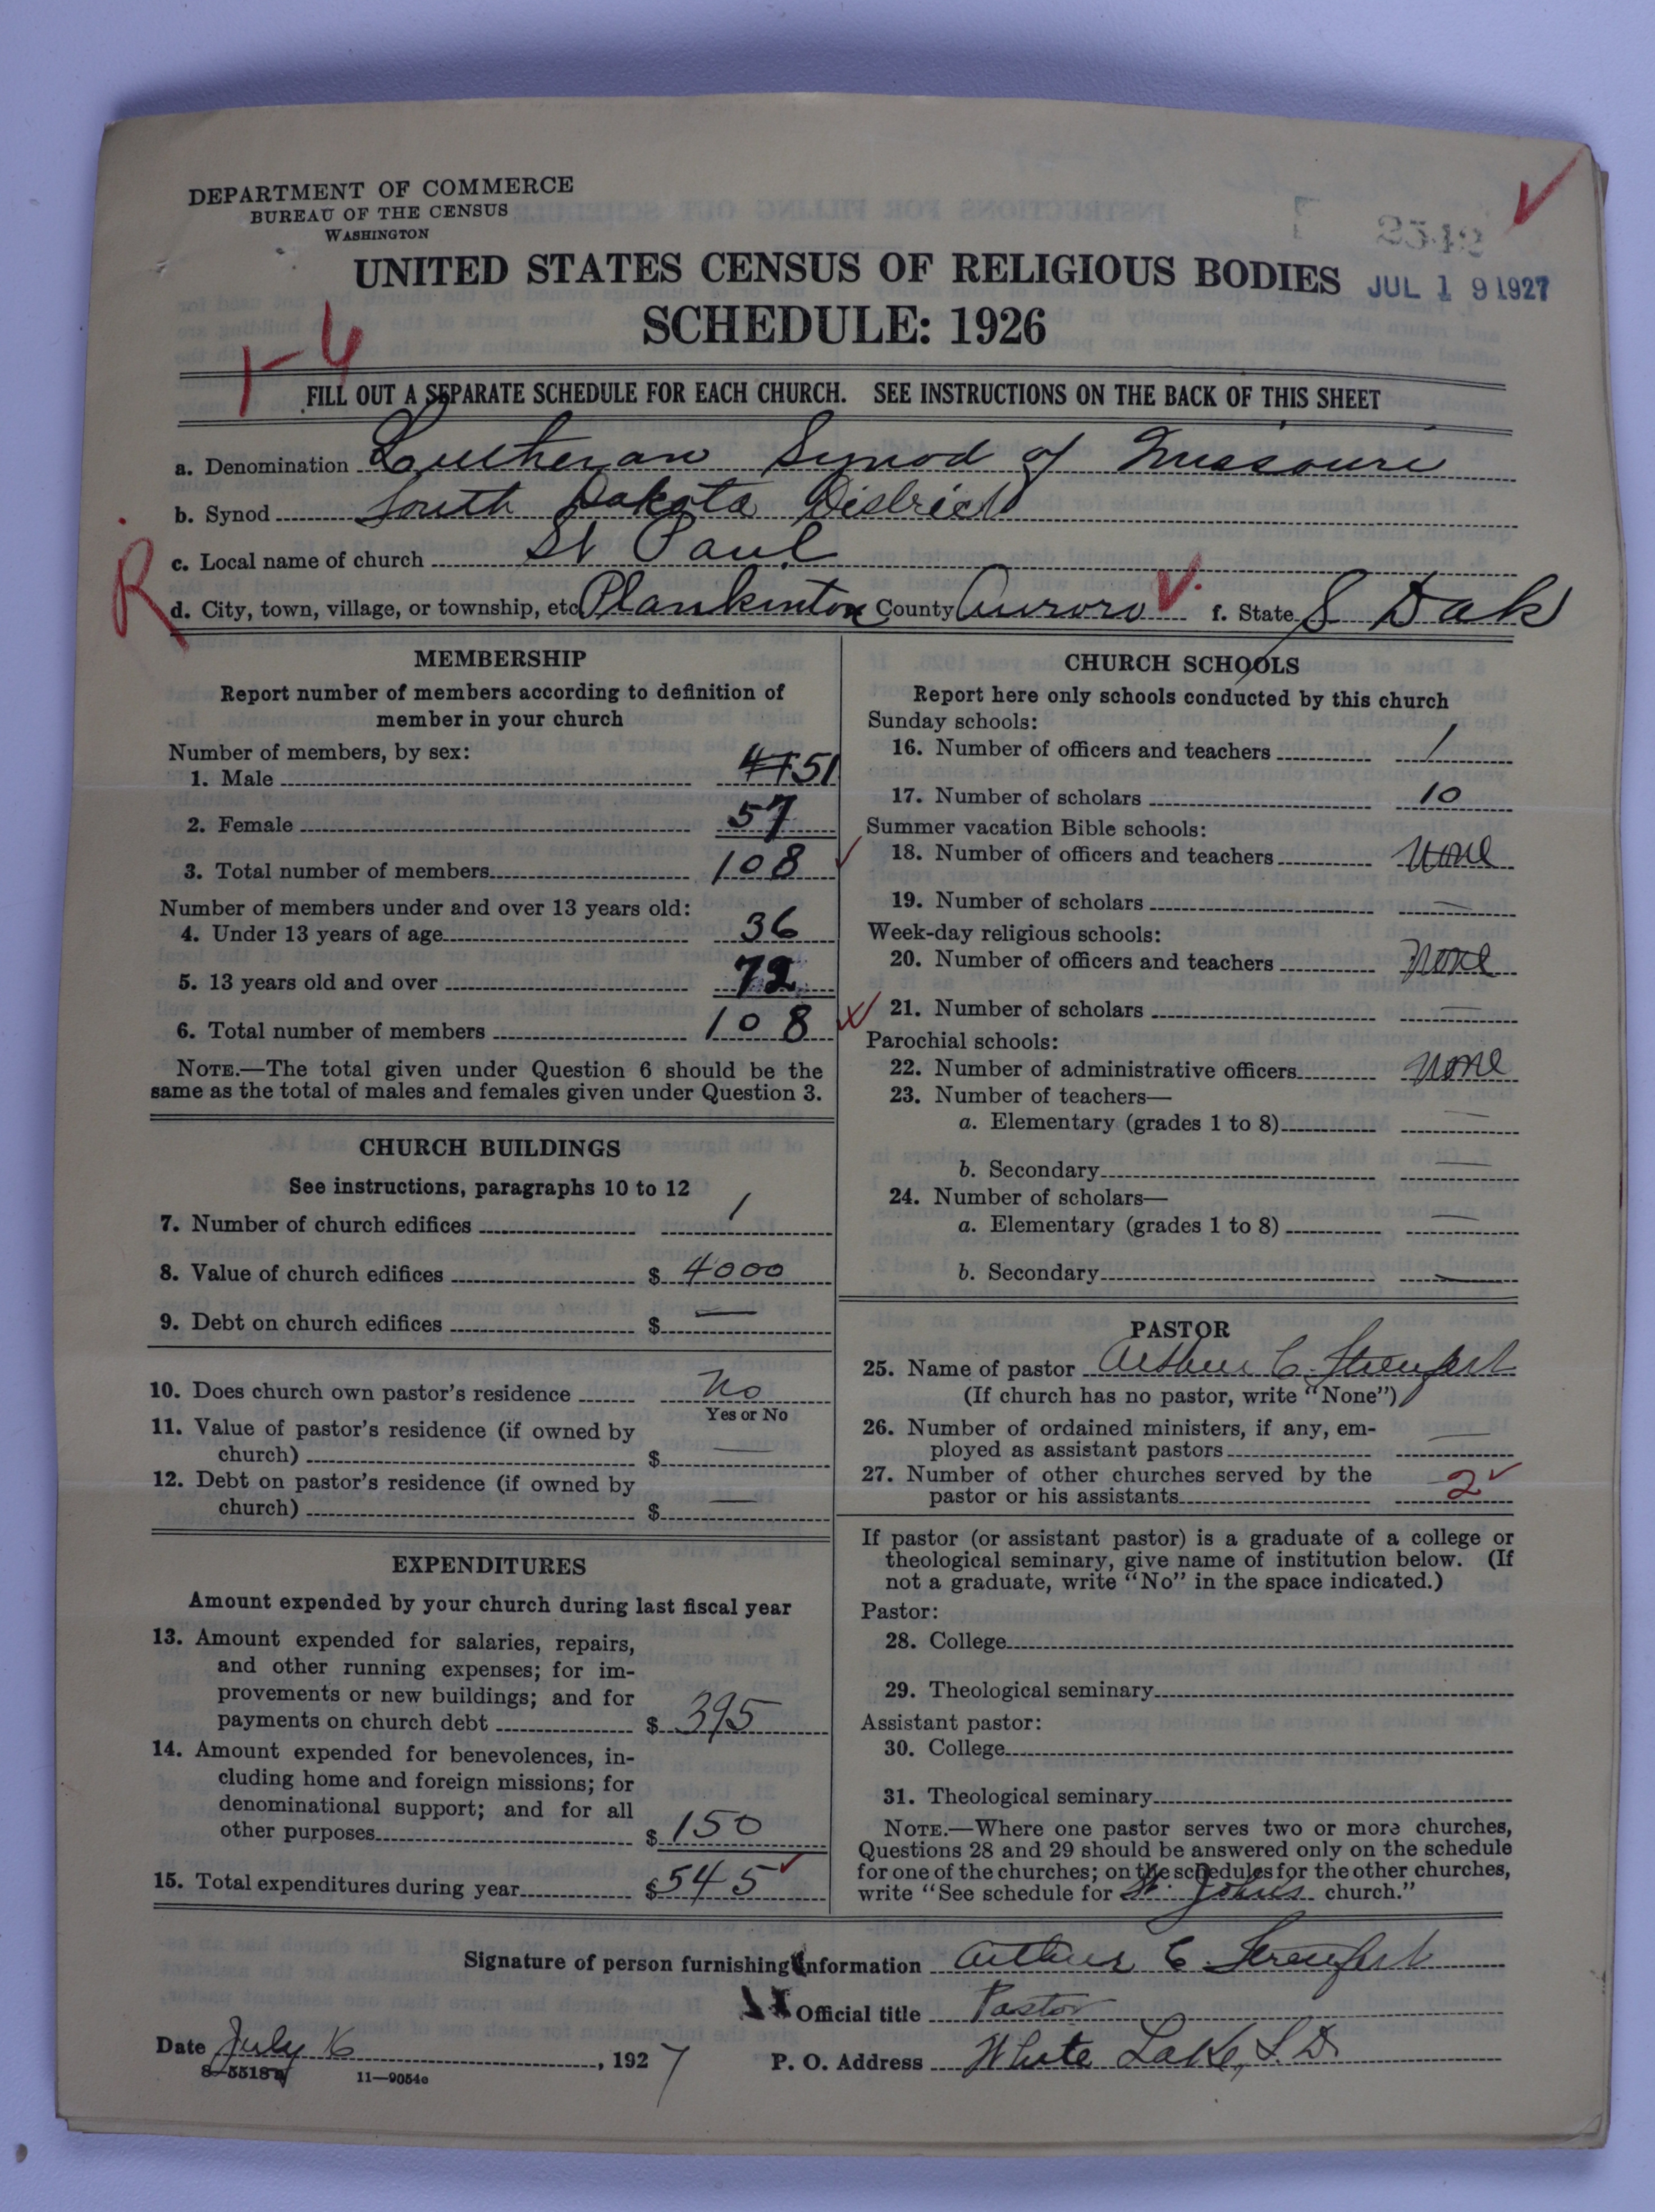 DEPARTMENT OF COMMERCE
BUREAU OF THE CENSUS
WASHINGTON
UNITED STATES CENSUS OF RELIGIOUS BODIES
JUL 19 1927
SCHEDULE: 1926
1-4
FILL OUT A SEPARATE SCHEDULE FOR EACH CHURCH. SEE INSTRUCTIONS ON THE BACK OF THIS SHEET
a. Denomination Lutheran Synod of Missouri
b. Synod South Dakota District
c. Local name of church St Paul
R
d. City, town, village, or township, etc. Plankinton County Aurora f. State S Dak
MEMBERSHIP
Report number of members according to definition of
member in your church
Number of members, by sex:
1. Male 51
2. Female 57
3. Total number of members 108
Number of members under and over 13 years old:
4. Under 13 years of age 36
5. 13 years old and over 72
6. Total number of members 108
NOTE.—The total given under Question 6 should be the
same as the total of males and females given under Question 3.
CHURCH BUILDINGS
See instructions, paragraphs 10 to 12
7. Number of church edifices 1
8. Value of church edifices $ 4000
9. Debt on church edifices $ —
10. Does church own pastor's residence No
Yes or No
11. Value of pastor's residence (if owned by
church) $ —
12. Debt on pastor's residence (if owned by
church) $ —
EXPENDITURES
Amount expended by your church during last fiscal year
13. Amount expended for salaries, repairs,
and other running expenses; for im-
provements or new buildings; and for
payments on church debt $ 395
14. Amount expended for benevolences, in-
cluding home and foreign missions; for
denominational support; and for all
other purposes $ 150
15. Total expenditures during year $ 545
CHURCH SCHOOLS
Report here only schools conducted by this church
Sunday schools:
16. Number of officers and teachers 1
17. Number of scholars 10
Summer vacation Bible schools:
18. Number of officers and teachers none
19. Number of scholars —
Week-day religious schools:
20. Number of officers and teachers none
21. Number of scholars —
Parochial schools:
22. Number of administrative officers none
23. Number of teachers—
a. Elementary (grades 1 to 8) —
b. Secondary —
24. Number of scholars—
a. Elementary (grades 1 to 8) —
b. Secondary —
PASTOR
25. Name of pastor Arthur C.
(If church has no pastor, write "None")
26. Number of ordained ministers, if any, em-
ployed as assistant pastors —
27. Number of other churches served by the
pastor or his assistants 2
If pastor (or assistant pastor) is a graduate of a college or
theological seminary, give name of institution below. (If
not a graduate, write "No" in the space indicated.)
Pastor:
28. College
29. Theological seminary
Assistant pastor:
30. College
31. Theological seminary
NOTE.—Where one pastor serves two or more churches,
Questions 28 and 29 should be answered only on the schedule
for one of the churches; on the schedules for the other churches,
write "See schedule for St. Johns church."
Signature of person furnishing information Arthur C
Official title Pastor
Date July 16, 1927
P. O. Address White Lake, S.D.
8-5518
11—9054